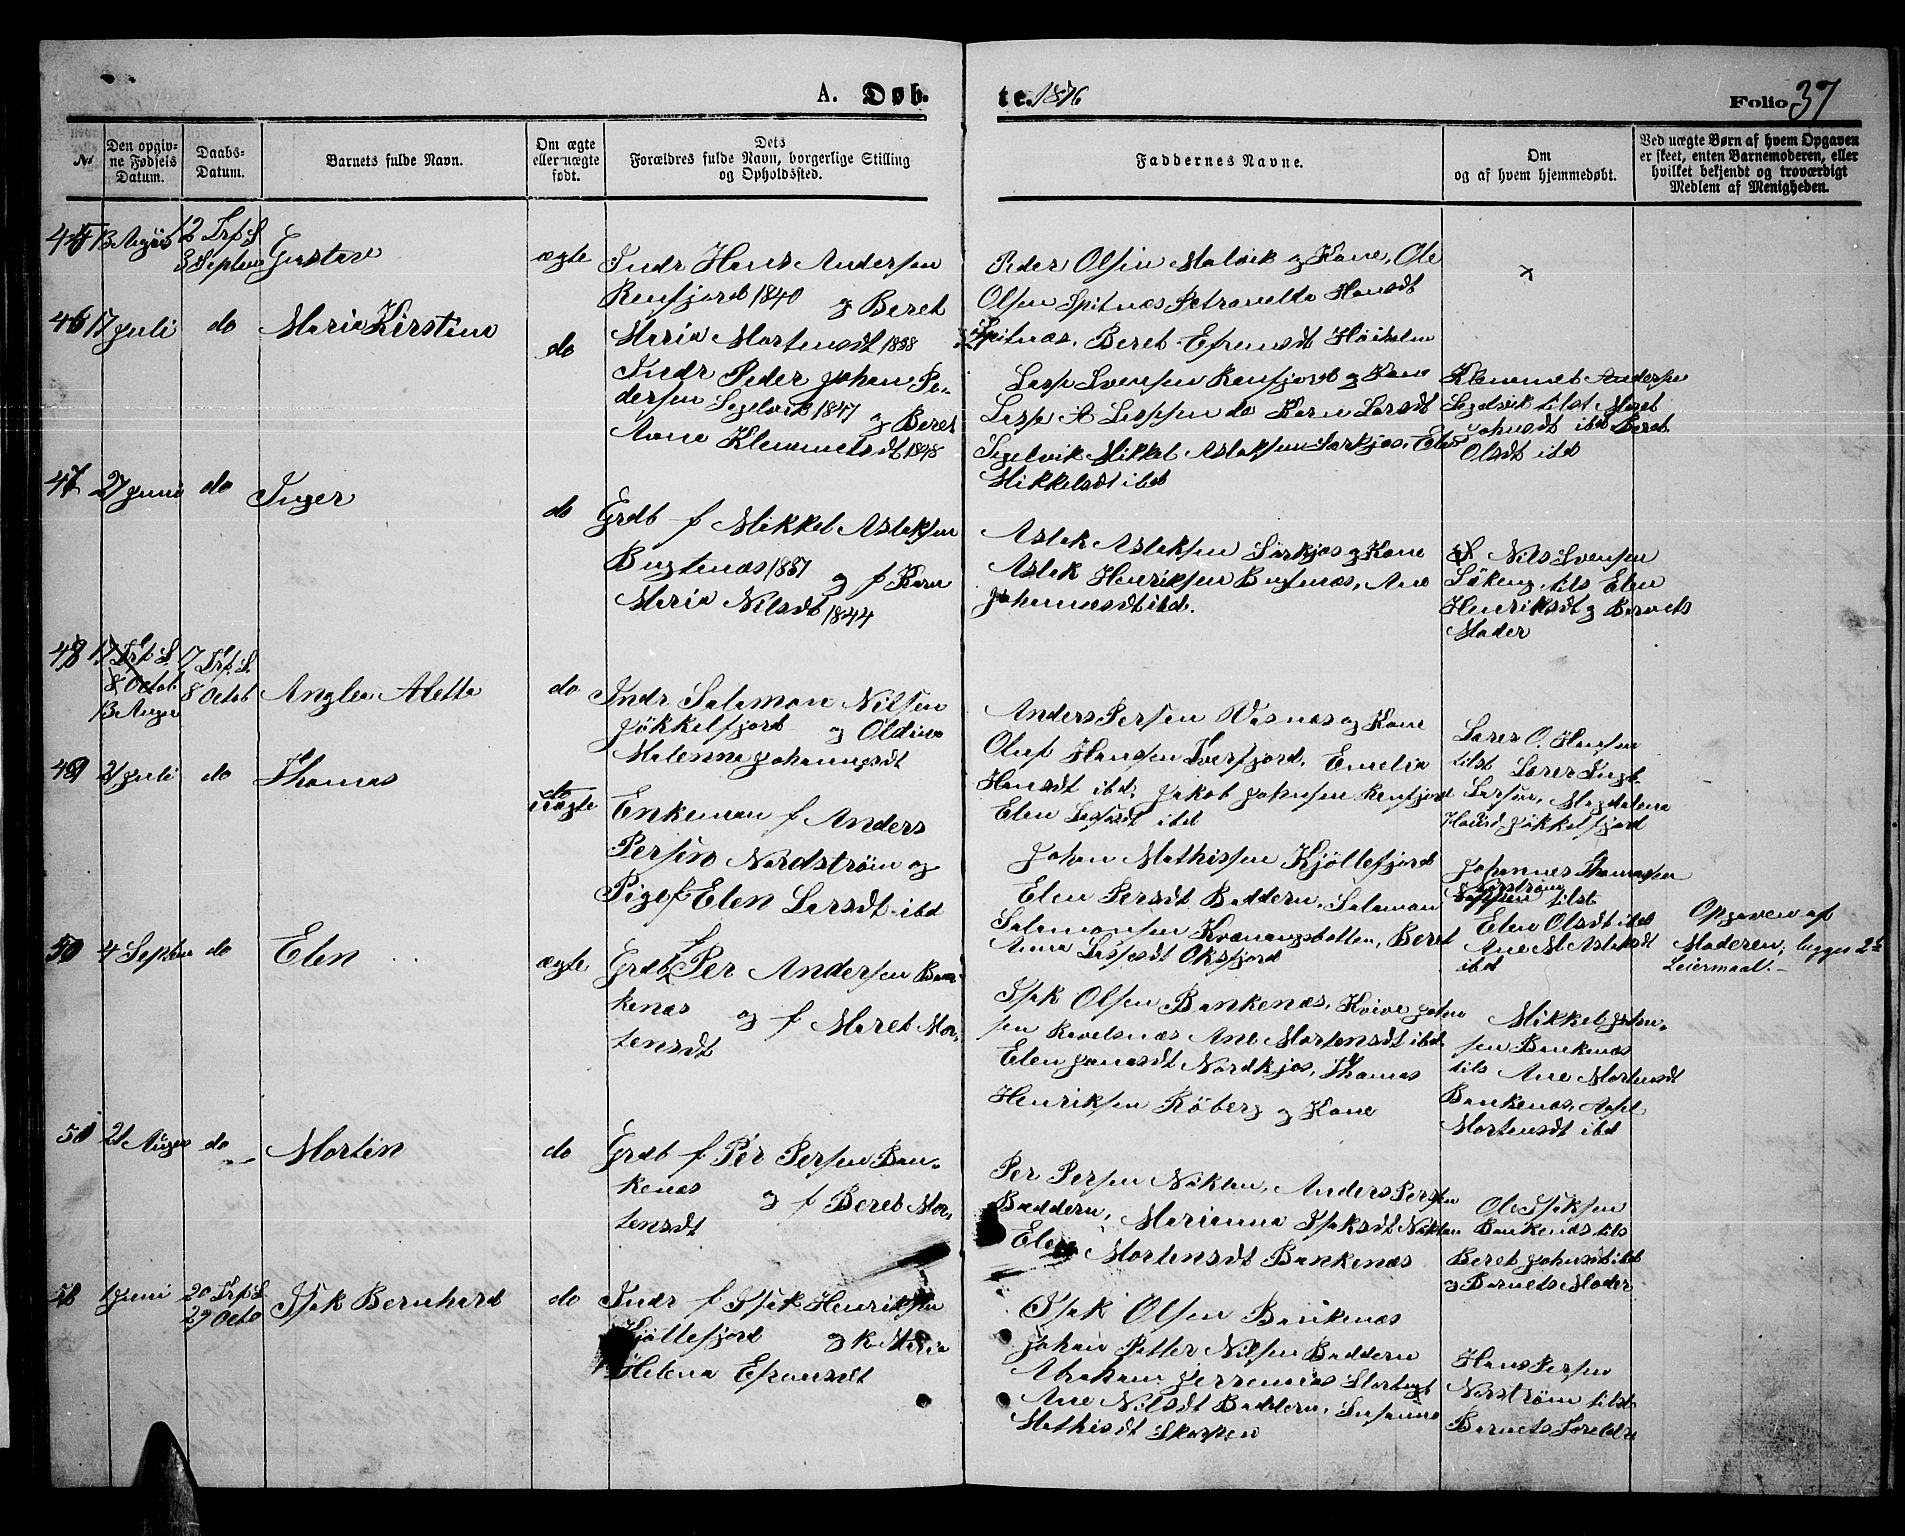 A. Døb-
te. 1876
Folio 37
№
Den opgiv-
ne Fødsels
Datum.
Daabs-
Datum.
Barnets fulde Navn.
Om ægte
eller uægte
født.
Dets
Forældres fulde Navn, borgerlige Stilling
og Opholdssted.
Faddernes Navne.
Om
og af hvem hjemmedøbt.
Ved uægte Børn af hvem Opgaven
er skeet, enten Barnemoderen, eller
hvilket bekjendt og troværdigt
Medlem af Menigheden.
45
13 August
12 Trf S
3 Septem
Gustav
ægte
Indr Hans Andersen
Renfjord 1840 og Beret
Maria Mortensdt 1838
Peder Olsen Malvik og Kone, Ole
Olsen Spitnæs Petranella Hansdt
Spitnæs, Beret Efremsdt Høiholm
x
46
17 Juli
do
Maria Kirstine
do
Indr Peder Johan Pe-
dersen Segelvik 1847 og Beret
Anne Klemmetsdt 1848
Lasse Svensen Renfjord og Kone
Lasse A Lassen do Karn Larsdt
Segelvik Mikkel Aslaksen Sørkjos, Elen
Mikkelsdt ibd
Klemmet Andersen
Segelvik tilst Maret
Johnsdt ibd Beret
Olsdt ibd
47
27 Juni
do
Inger
do
Grdb f Mikkel Aslaksen
Bugtnæs 1837 og f Karn
Maria Nilsdt 1844
Aslak Aslaksen Sørkjos og Kone
Aslak Henriksen Bugtnæs, Ane
Johannesdt ibd.
Nils Svensen
Løkeng, tils Elen
Henriksdt og Barnets
Moder
48
17 Trf S.
8 Octob
13 Augu
17 Trf. S.
8 Octob
Anglea Aletta
do
Indr Salamon Nilsen
Jøkkelfjord og Oldine
Malenna Johannsdt
Anders Persen Wasnæs og Kone
Oluf Hansen Tverfjord, Emelia
Hansdt ibd; Jakob Johnsen Renfjord
Elen Lassesdt ibd
Lærer O. Hansen
tilst Lærer Ingb.
Larsen, Magdalena
Hansd Jøkkelfjord
49
21 Juli
do
Thomas
do
uægte
Enkeman f Anders
Persen Nordstrøm og
Pige f Elen Larsdt ibd
Johan Mathissen Kjøllefjord
Elen Persdt Baddern, Salamon
Salamonsen Kvænangsbotten, Beret
Anna Lassesdt Oksfjord
Johannes Thomassen
Norstrøm
tilst
Elen Olsdt ibd
Ane M Aslaksdt
ibd
Opgaven af
Moderen; begges 2de
Leiermaal.
50
4 Septem
do
Elen
ægte
Grdb f Per Andersen Ban-
kenæs og f Maret Mor-
tensdt
Isak Olsen Bankenæs, Hvive John
sen Revelsnæs Ane Mortensdt ibd
Elen Jonasdt Nordkjos, Thomas
Henriksen Røberg og Kone
Mikkel John-
sen Bankenæs
tils Ane Mortensdt
Bankenæs,
Mortensdt ibd
51
21 Augus
do
Morten
do
Grdb f Per Persen Ban-
kenæs og f Beret Mor-
tensdt
Per Persen Nøklan, Anders Persen
Baddern, Marianna Isaksdt Nøklan
Elen Mortensdt Bankenæs
Ole Isaksen
Bankenæs tils
Beret Johnsdt ibd
og Barnets Moder
52
1 Juni
20 Trf. S
29 Octo
Isak Bernhard
do
Indr f Isak Henriksen
Kjøllefjord og k Maria
Helena Efraimsdt
Isak Olsen Bankenæs
Johan Petter Nilsen Baddern
Abraham Jerremias Storbugt
Ane Nilsdt Baddern, Susanna
Mathisdt Skorpen
Hans Persen
Norstrøm tilst
Barnets Foreldre